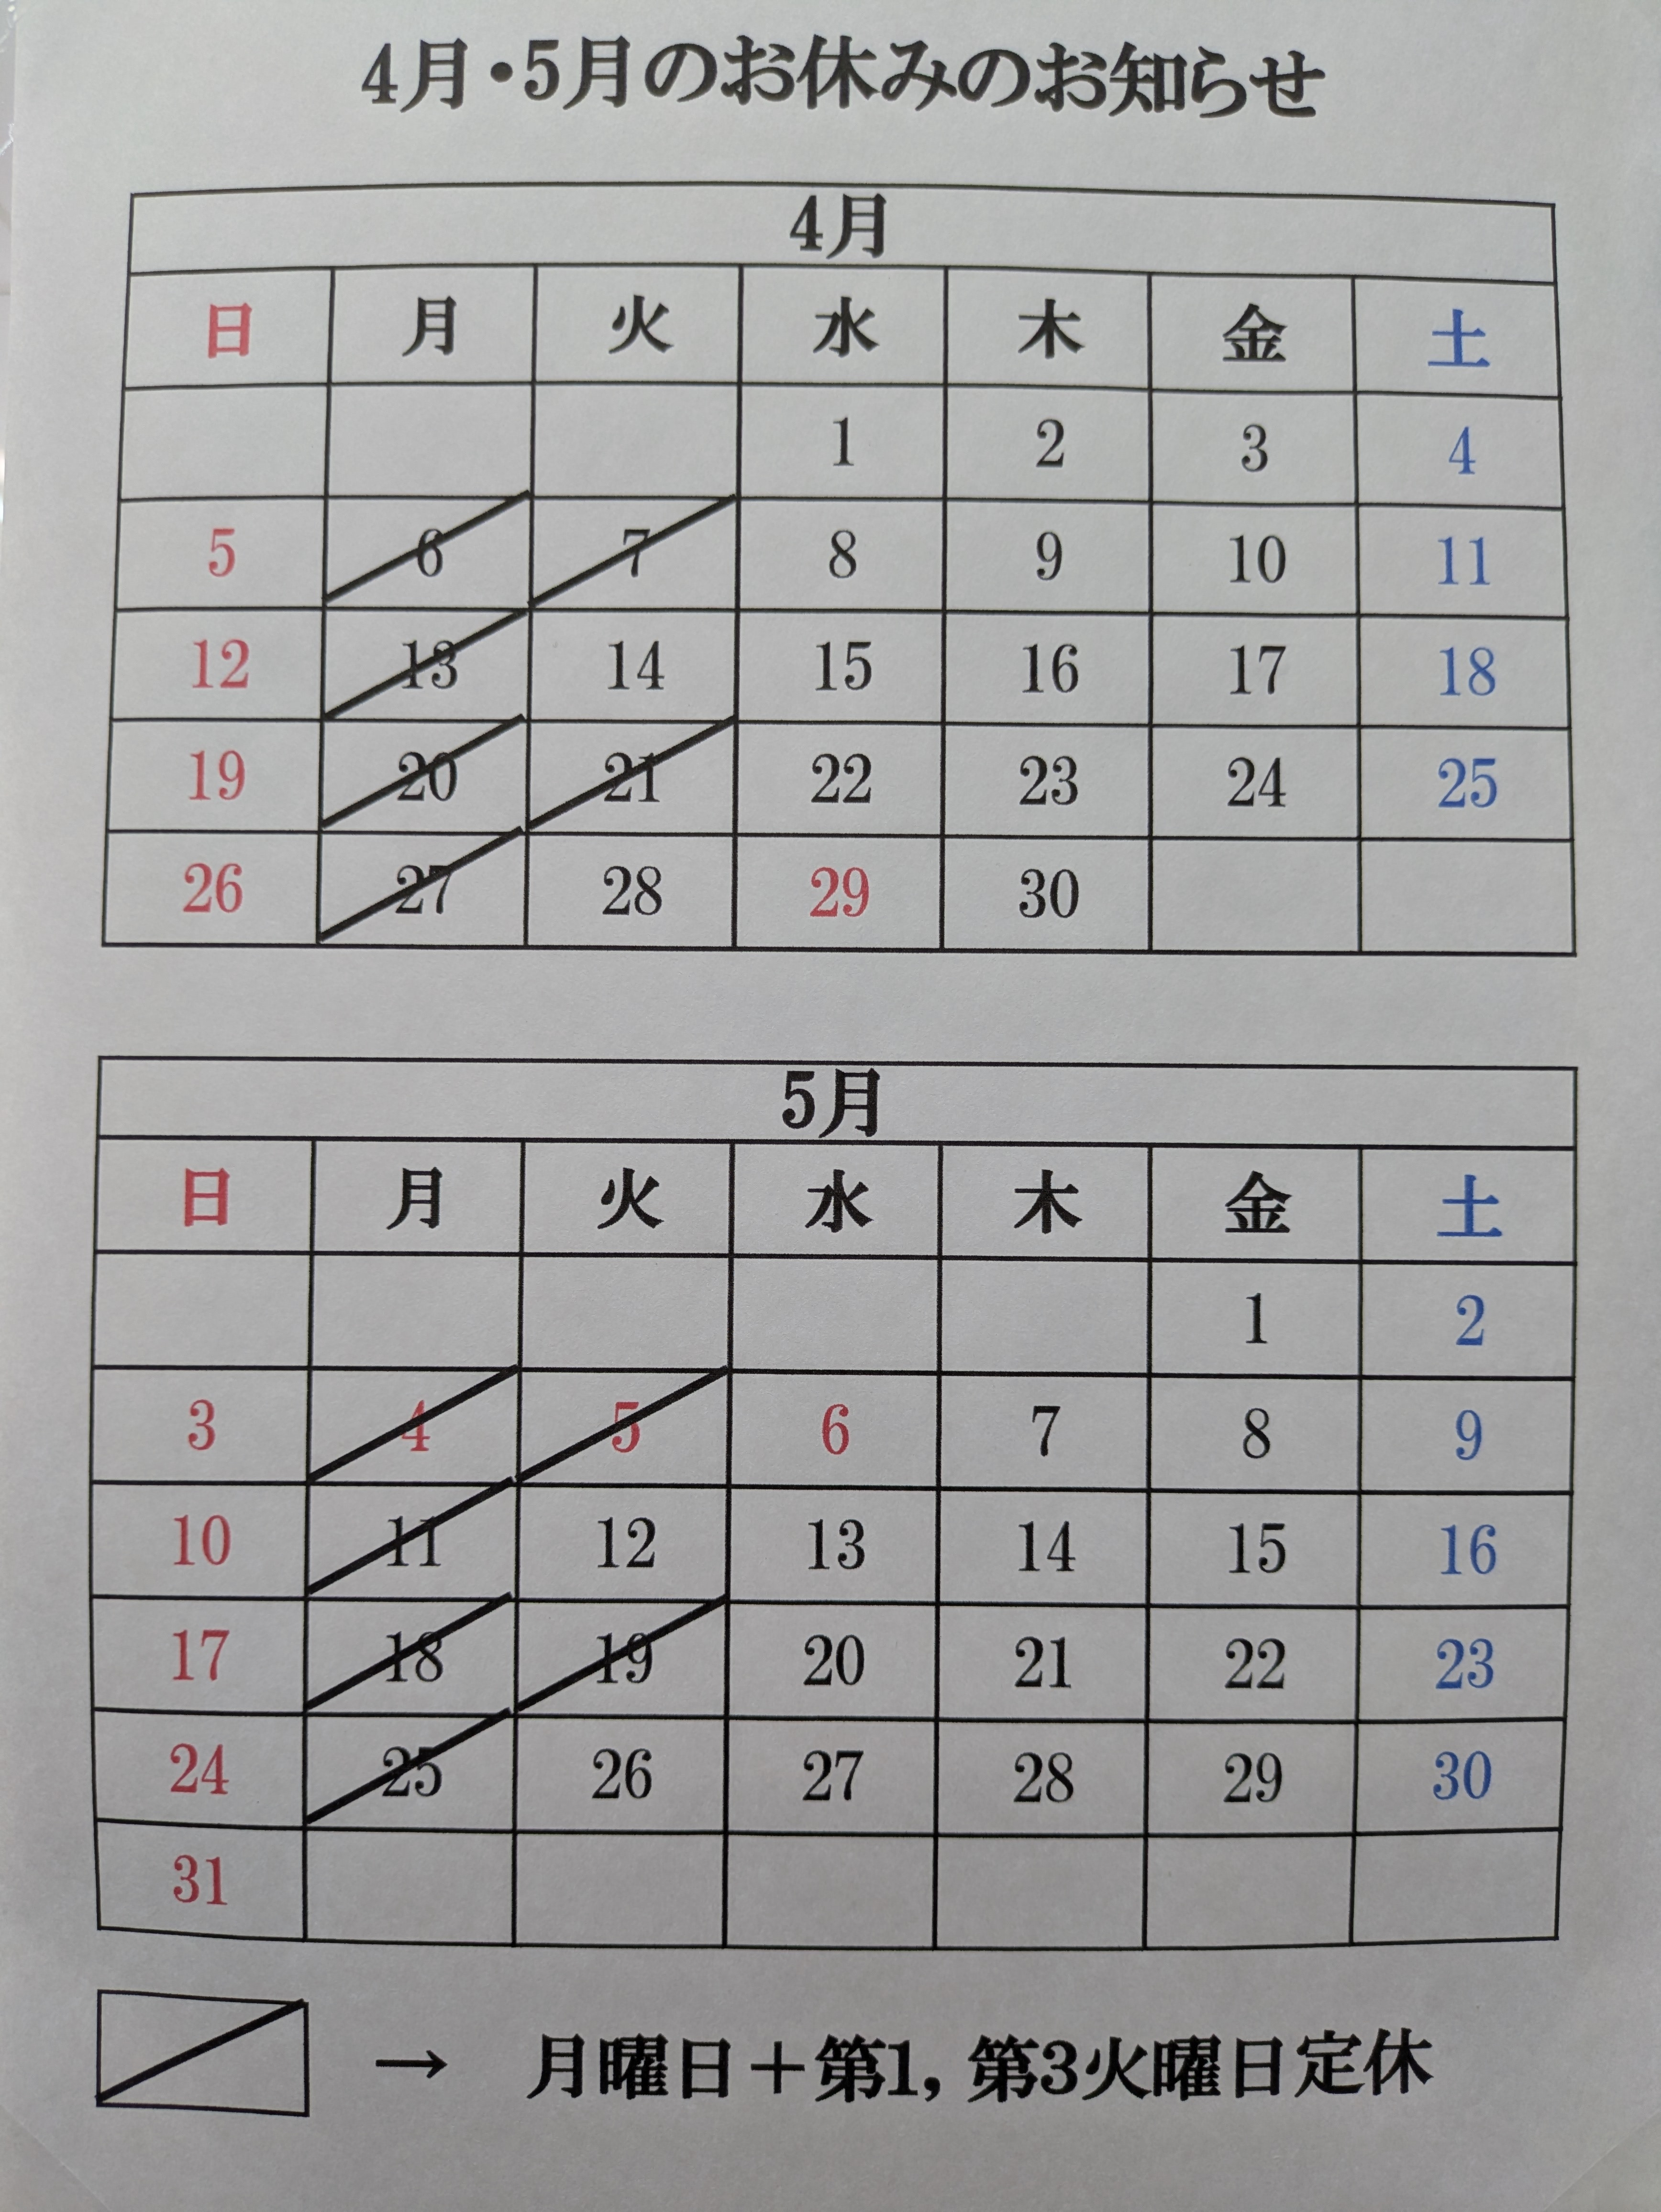 4月・5月のお休みのお知らせ
4月
日 月 火 水 木 金 土
1 2 3 4
5 6 7 8 9 10 11
12 13 14 15 16 17 18
19 20 21 22 23 24 25
26 27 28 29 30
5月
日 月 火 水 木 金 土
1 2
3 4 5 6 7 8 9
10 11 12 13 14 15 16
17 18 19 20 21 22 23
24 25 26 27 28 29 30
31
→ 月曜日＋第1, 第3火曜日定休